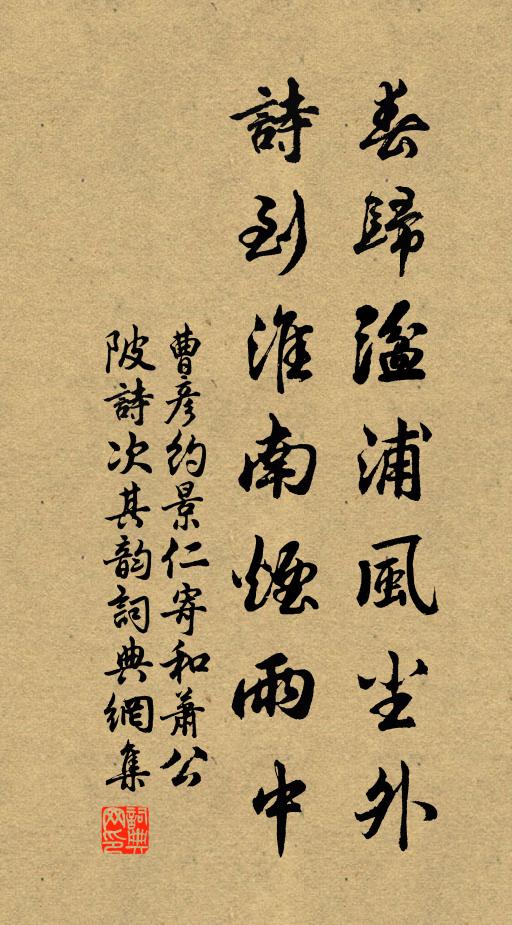 春歸湓浦風尘外
詩到淮南煙雨中
曹彦約景仁寄和蕭公
陂詩次其韵詞典網集
詞典网印